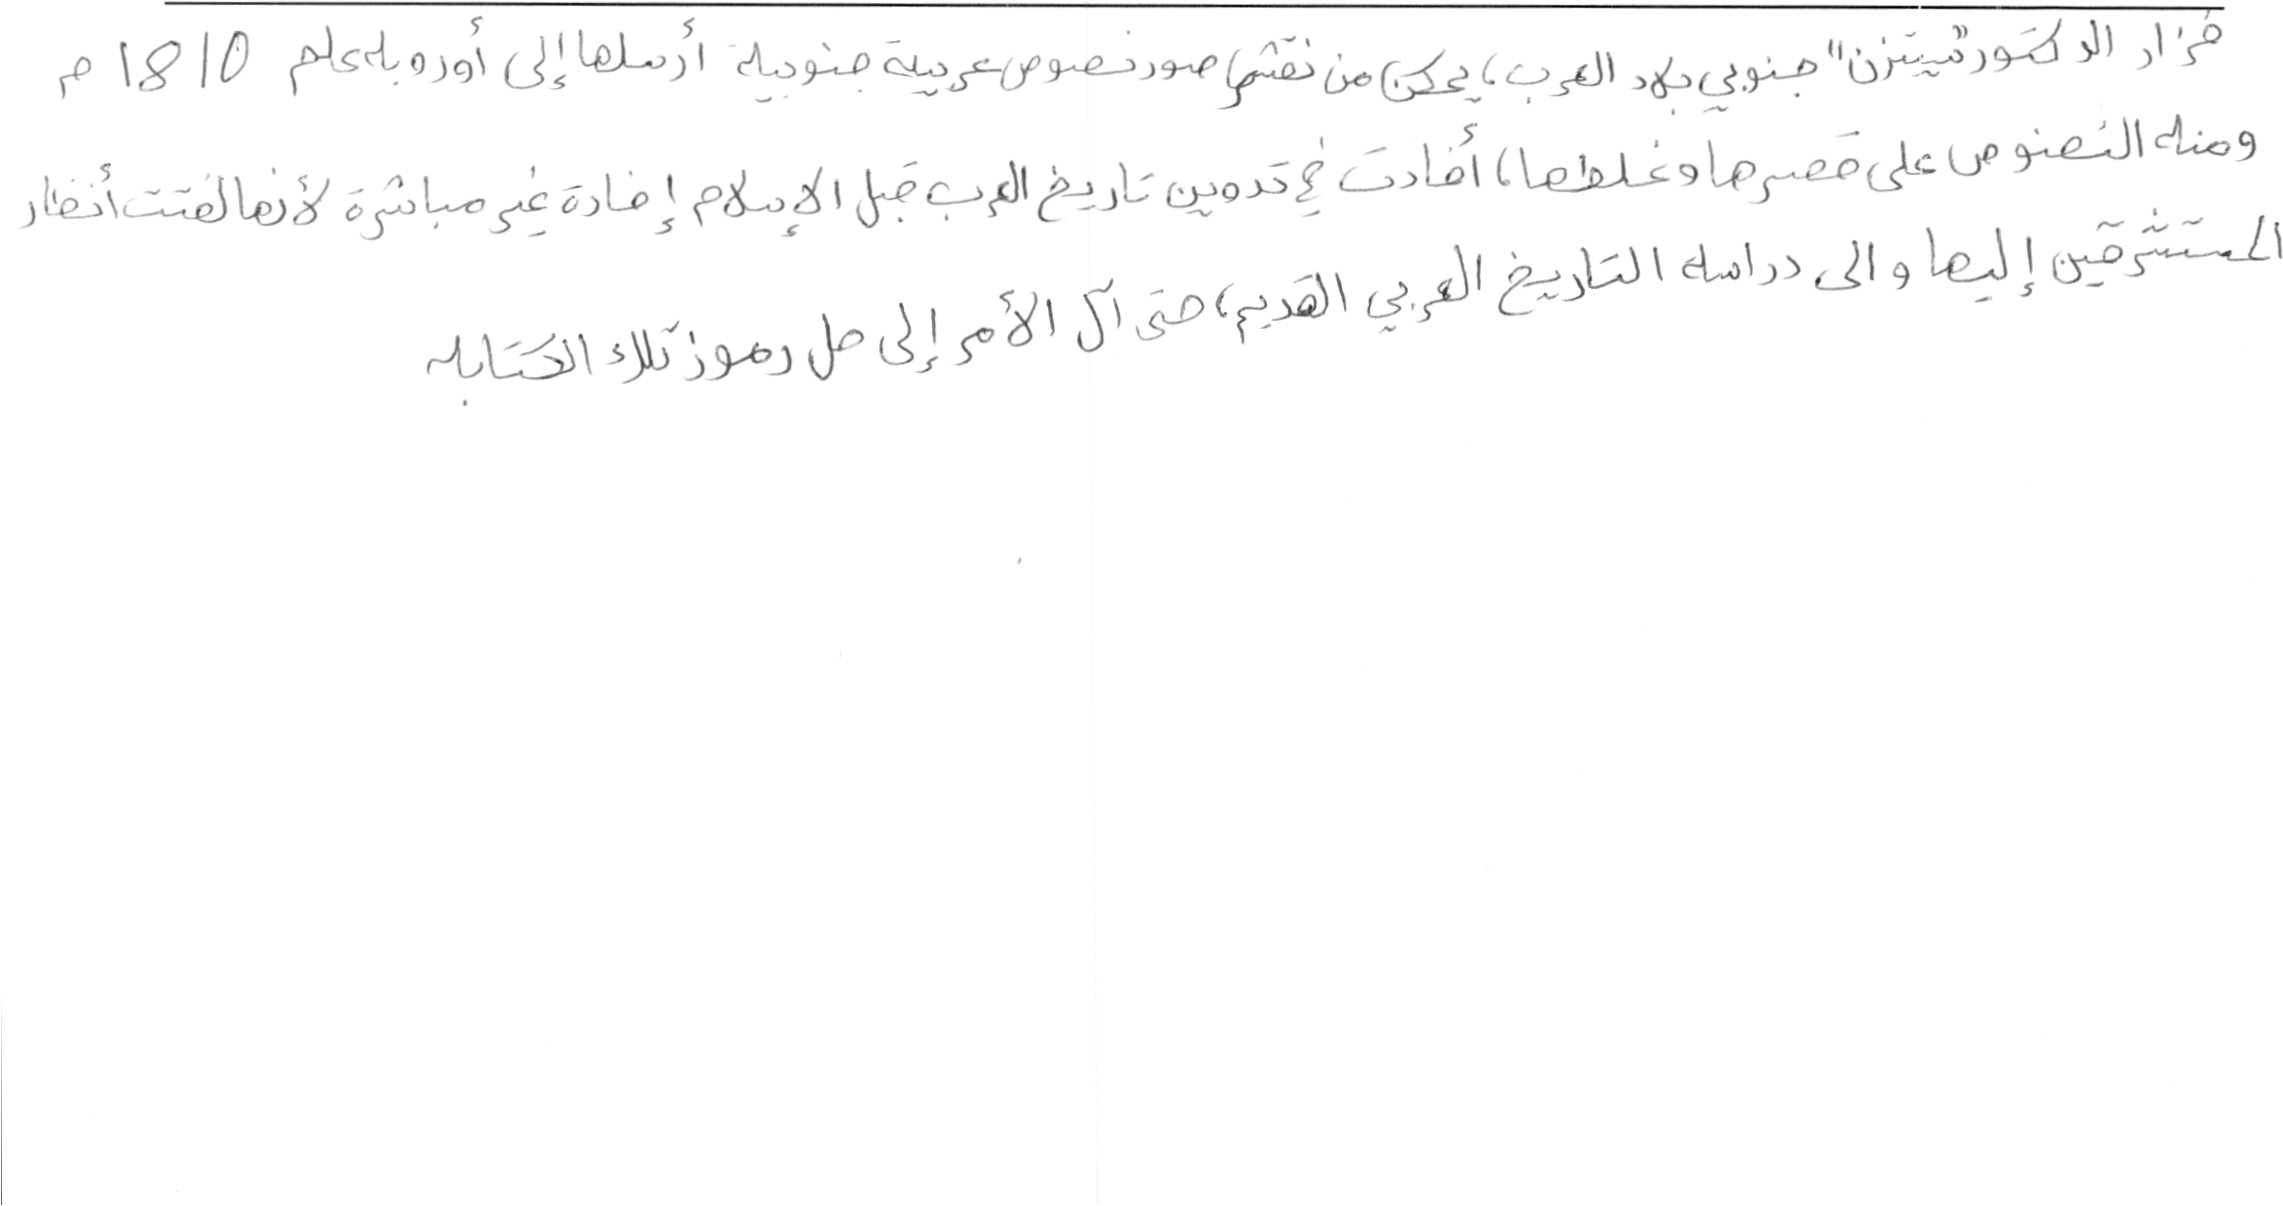 فزار الدكتور "سيتزن" جنوبي بلاد العرب، يمكن من نقشها صور نصوص عربية جنوبية أرسلها إلى أوروبه علم 1810 م
ومنه النصوص على قصرها وغلطها، أفادت في تدوين تاريخ العرب قبل الإسلام إفادة غير مباشرة لأنها لفتت أنظار
المستشرقين إليها والى دراسه التاريخ العربي القديم، حتى آل الأمر إلى حل رموز تلك الكتابه